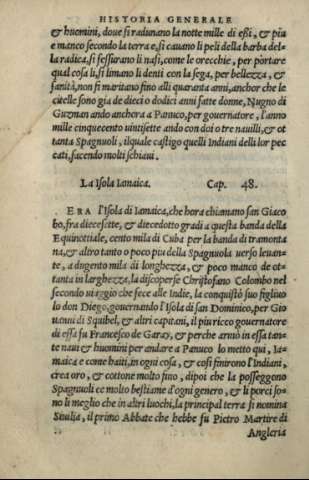 HISTORIA GENERALE
& huomini, doue si radunano la notte mille di essi, & piu
e manco secondo la terra e, si cauano li peli della barba del-
la radica, si fessurano li nasi, come le orecchie, per portare
qual cosa li, si limano li denti con la sega, per bellezza, &
sanità, non si maritano fino alli quaranta anni, anchor che le
citelle sono gia de dieci o dodici anni fatte donne, Nugno di
Guzman ando anchora a Panuco, per gouernatore, l'anno
mille cinquecento uintisette ando con doi o tre nauilli, & ot
tanta Spagnuoli, ilquale castigo quelli Indiani delli lor pec
cati, facendo molti schiaui.
La Isola Iamaica. Cap. 48.
ERA l'Isola di Iamaica, che hora chiamano san Giaco
bo, fra diecesette, & diecedotto gradi a questa banda della
Equinottiale, cento mila di Cuba per la banda di tramonta
na, & altro tanto o poco piu della Spagnuola uerso leuan-
te, a dugento mila di longhezza, & poco manco de ot-
tanta in larghezza, la discoperse Christofano Colombo nel
secondo uiaggio che fece alle Indie, la conquistò suo figliuo
lo don Diego, gouernando l'Isola di san Dominico, per Gio
uanni di Squibel, & altri capitani, il piu ricco gouernatore
di essa fu Francesco de Garay, & perche armò in essa tan-
te naui & huomini per andare a Panuco lo metto qui, Ia-
maica e come haiti, in ogni cosa, & cosi finirono l'Indiani,
crea oro, & cottone molto fino, dipoi che la posseggono
Spagnuoli ce molto bestiame d'ogni genero, & li porci so-
no li meglio che in altri luochi, la principal terra si nomina
Siuilia, il primo Abbate che hebbe fu Pietro Martire di
Angleria